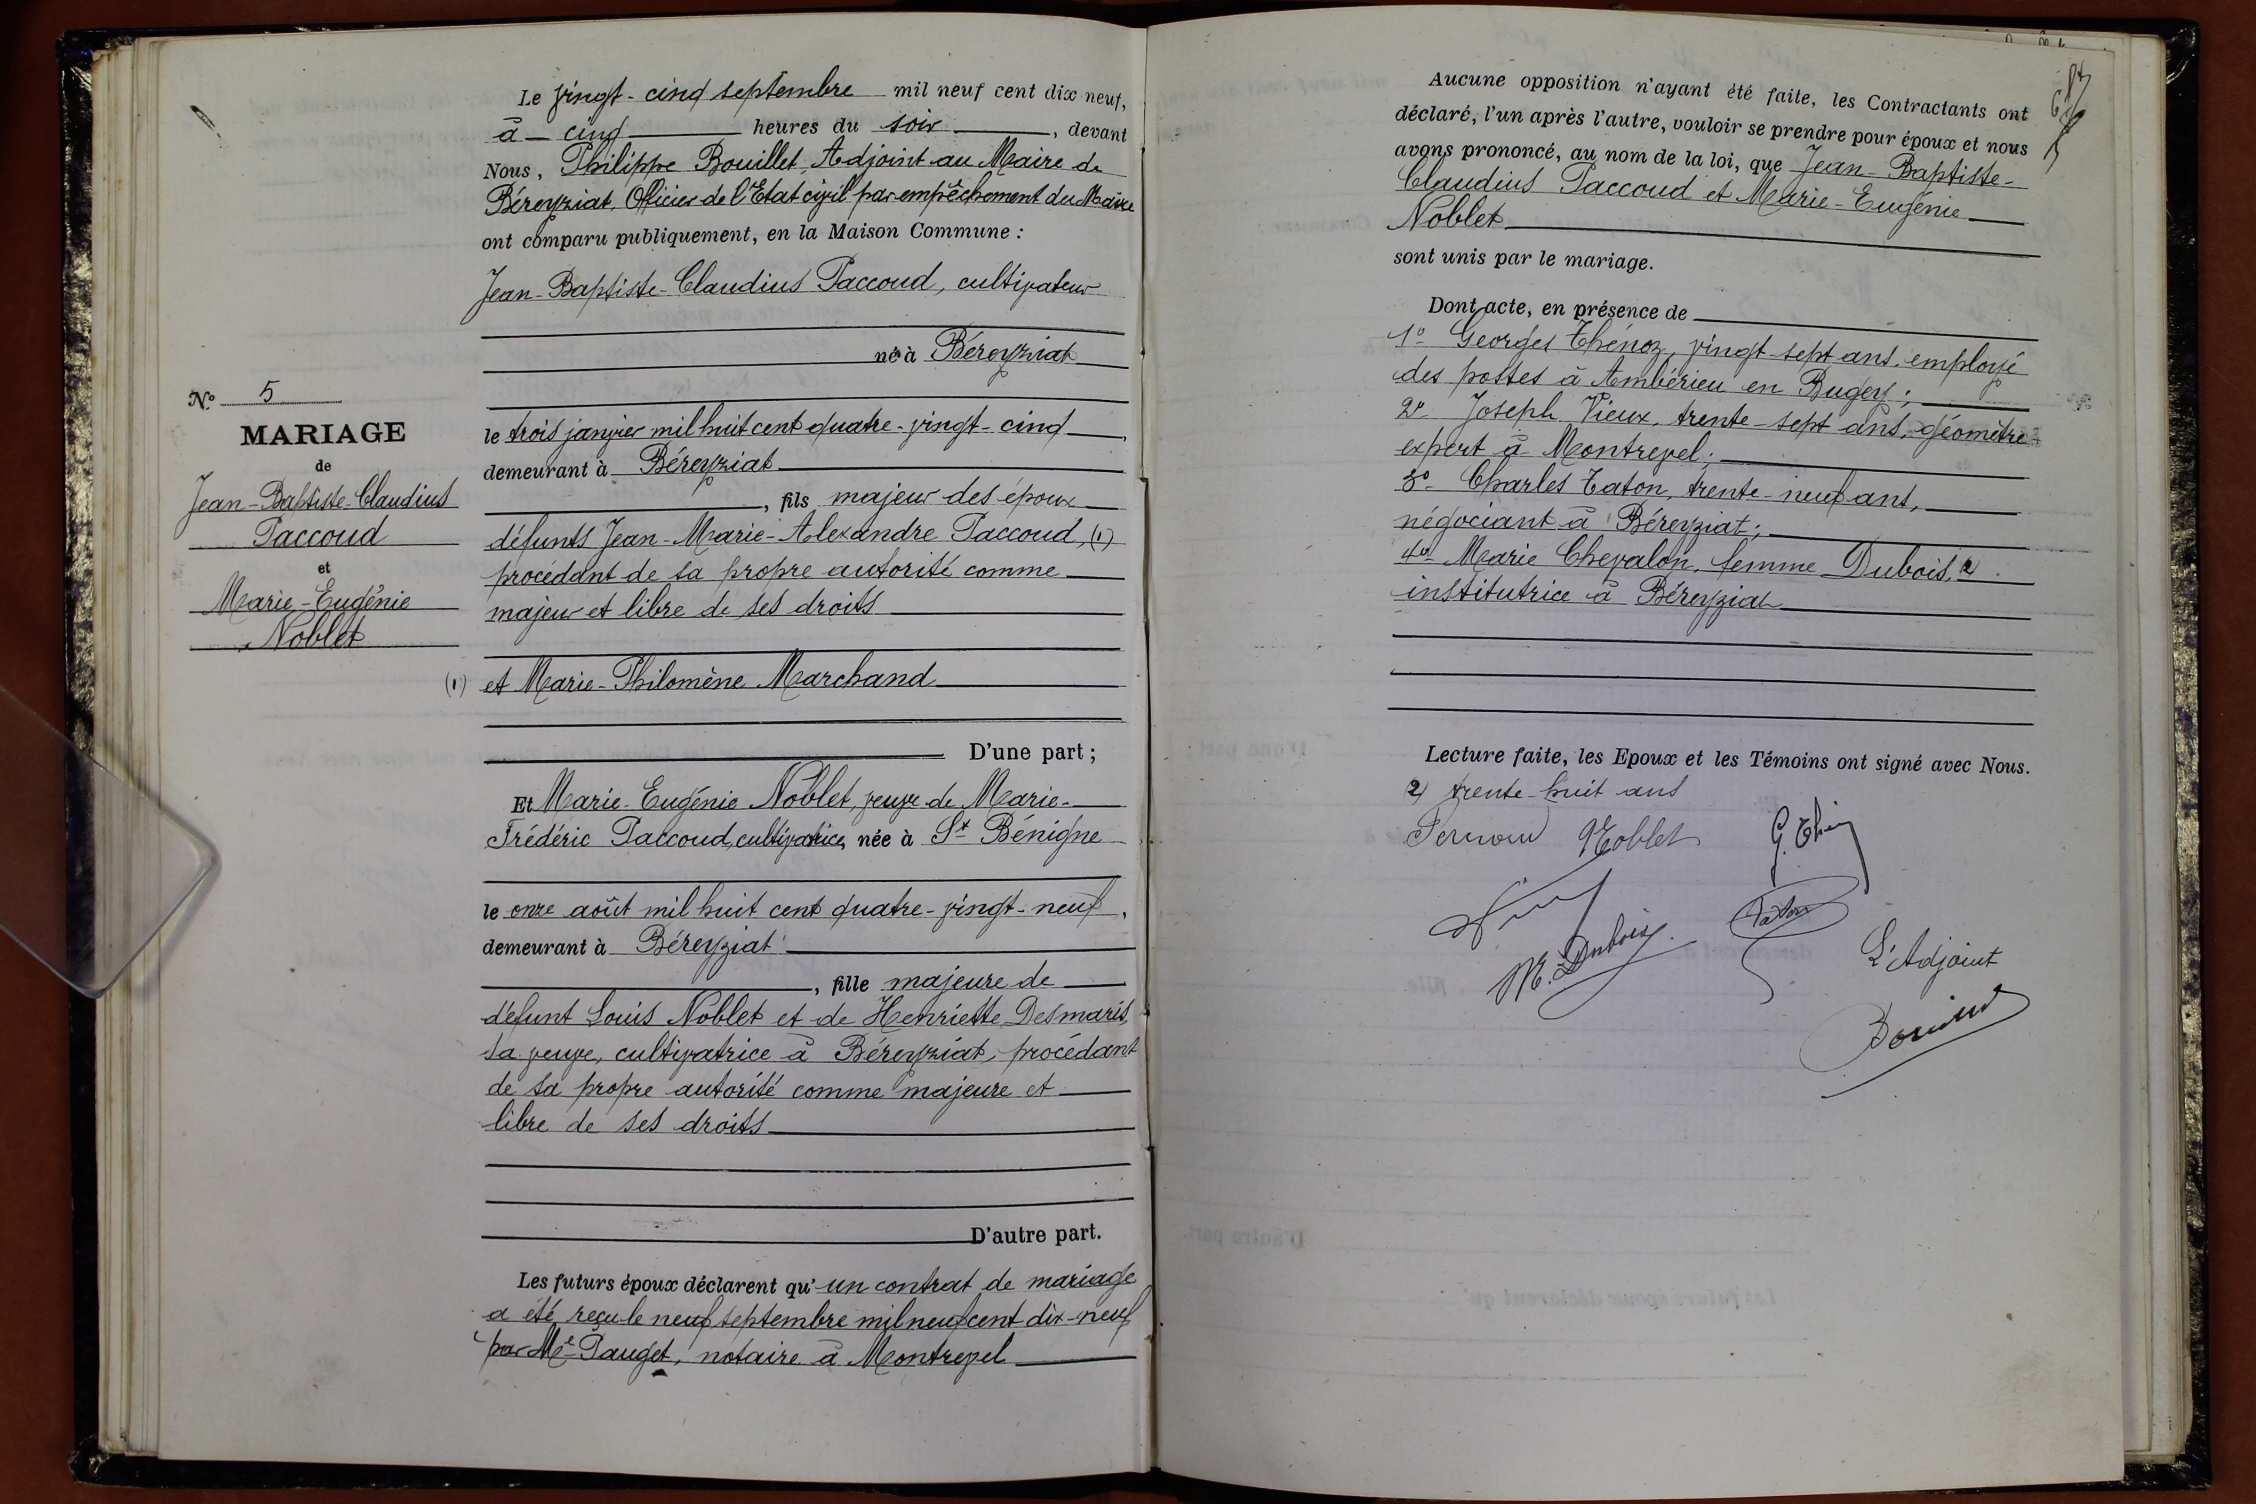 Le vingt-cinq septembre mil neuf cent dix neuf,
à cinq heures du soir, devant
Nous, Philippe Bouillet, Adjoint au Maire de
Béreyziat, Officier de l'Etat civil par empêchement du Maire
ont comparu publiquement, en la Maison Commune :
Jean-Baptiste-Claudius Paccoud, cultivateur
né à Béreyziat
le trois janvier mil huit cent quatre-vingt-cinq,
demeurant à Béreyziat
, fils majeur des époux
défunts Jean-Marie-Alexandre Paccoud, (1)
procédant de sa propre autorité comme
majeur et libre de ses droits
(1) et Marie-Philomène Marchand
D'une part ;
Et Marie-Eugénie Noblet, veuve de Marie-
Frédéric Paccoud, cultivatrice, née à St Bénigne
le onze août mil huit cent quatre-vingt-neuf,
demeurant à Béreyziat
, fille majeure de
défunt Louis Noblet et de Henriette Desmaris,
sa veuve, cultivatrice à Béreyziat, procédant
de sa propre autorité comme majeure et
libre de ses droits
D'autre part.
Les futurs époux déclarent qu'un contrat de mariage
a été reçu le neuf septembre mil neuf cent dix-neuf
par Me Pauget, notaire à Montrevel
No 5
MARIAGE
de
Jean-Baptiste-Claudius
Paccoud
et
Marie-Eugénie
Noblet
Aucune opposition n'ayant été faite, les Contractants ont
déclaré, l'un après l'autre, vouloir se prendre pour époux et nous
avons prononcé, au nom de la loi, que Jean-Baptiste-
Claudius Paccoud et Marie-Eugénie
Noblet
sont unis par le mariage.
Dont acte, en présence de
1o Georges Thénoz, vingt-sept ans, employé
des postes à Ambérieu en Bugey ;
2o Joseph Vieux, trente-sept ans, géomètre-
expert à Montrevel ;
3o Charles Taton, trente-neuf ans,
négociant à Béreyziat ;
4o Marie Chevalon, femme Dubois, 2)
institutrice à Béreyziat
Lecture faite, les Epoux et les Témoins ont signé avec Nous.
2) trente-huit ans
Noblet
M. Dubois
Taton
L'Adjoint